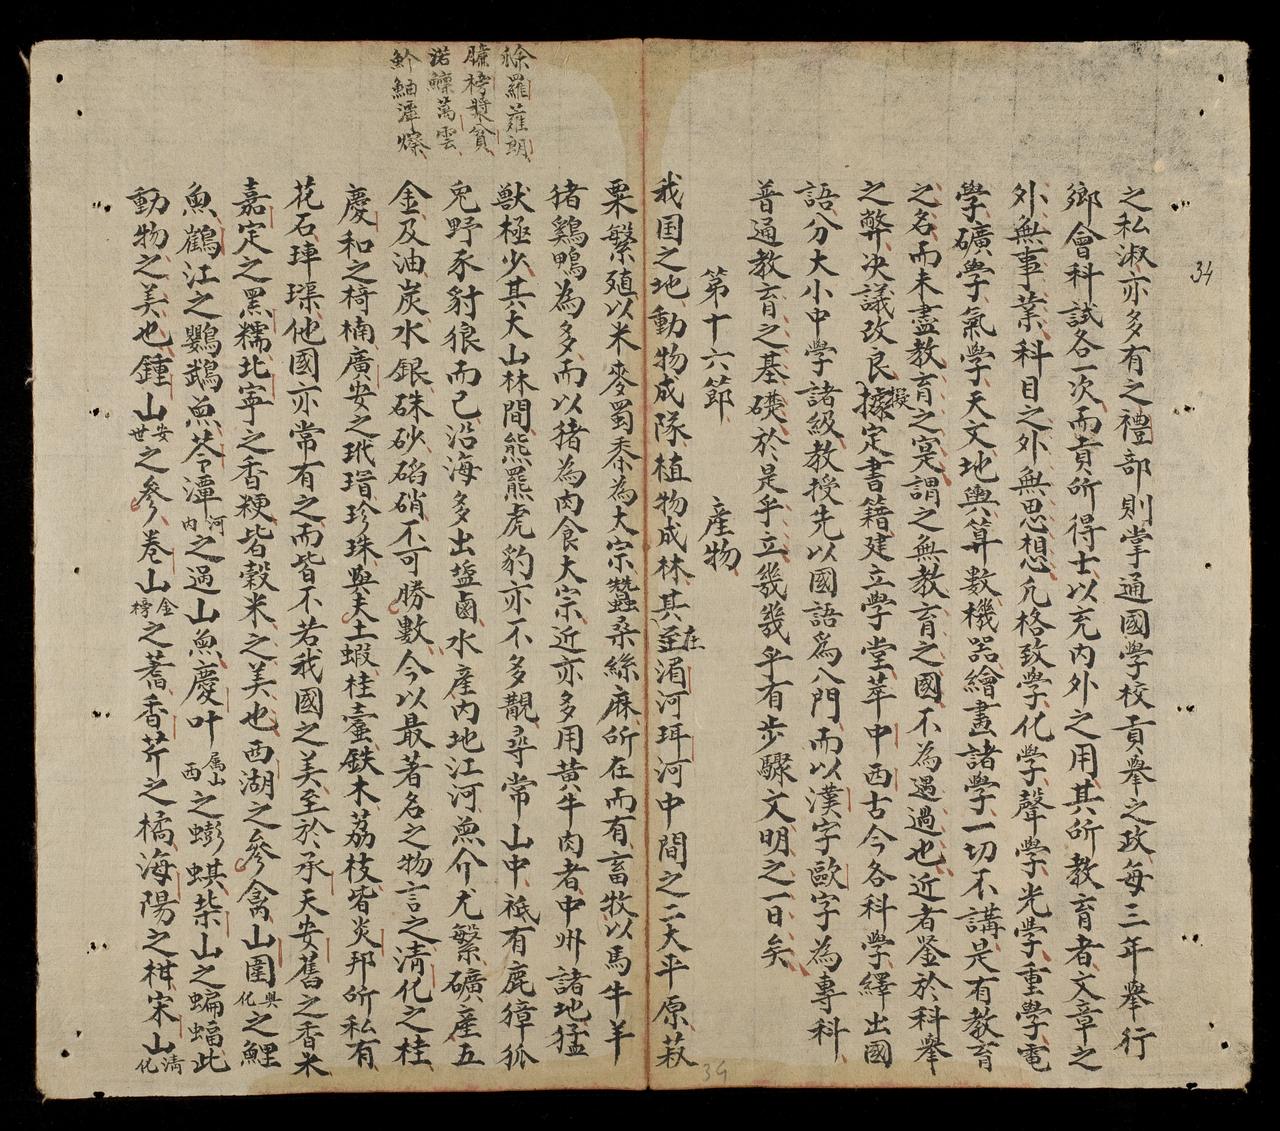 34
之私淑亦多有之禮部則掌通國學校貢舉之政每三年舉行
鄉會科試各一次而貢所得士以充内外之用其所教育者文章之
外無事業科目之外無思想凢格致學化學聲學光學重學電
學礦學氣學天文地輿算數機器繪畫諸學一切不講是有教育
之名而未盡教育之寔謂之無教育之國不為過過也近者鉴於科舉
之弊决議改良據擬定書籍建立學堂萃中西古今各科學繹出國
語分大小中學諸級教授先以國語爲入門而以漢字歐字為專科
普通教育之基礎於是乎立幾幾乎有步驟文明之一日矣
第十六節 産物
我国之地動物成隊植物成林其至在湄河珥河中間之二大平原菽
粟繁殖以米麥蜀黍為大宗蠶桑絲麻所在而有畜牧以馬牛羊
猪鷄鴨為多而以猪為肉食大宗近亦多用黄牛肉者中州諸地猛
獸極少其大山林間熊羆虎豹亦不多覩尋常山中祗有鹿獐狐
兔野豕豺狼而已沿海多出塩鹵水産内地江河魚介尤繁礦産五
金及油炭水銀硃砂硝不可勝數今以最著名之物言之清化之桂
慶和之楠廣安之玳瑁珍珠與夫土蝦桂蠹鉄木荔枝皆炎邦所私有
花石璖他國亦常有之而皆不若我國之美至於承天安舊之香米
嘉定之黑糯北寧之香粳皆穀米之美也西湖之參禽山圍興化之鯉
魚鶴江之鸚鵡魚芩潭河内之過山魚慶叶属山西之蟛蜞柴山之蝙蝠此
動物之美也鍾山安世之參卷山金榜之蓍香芹之橘海陽之柑宋山清化
稌羅蕹朗
榜漿貧
渃鱷萬雲
魪鮋潭
34